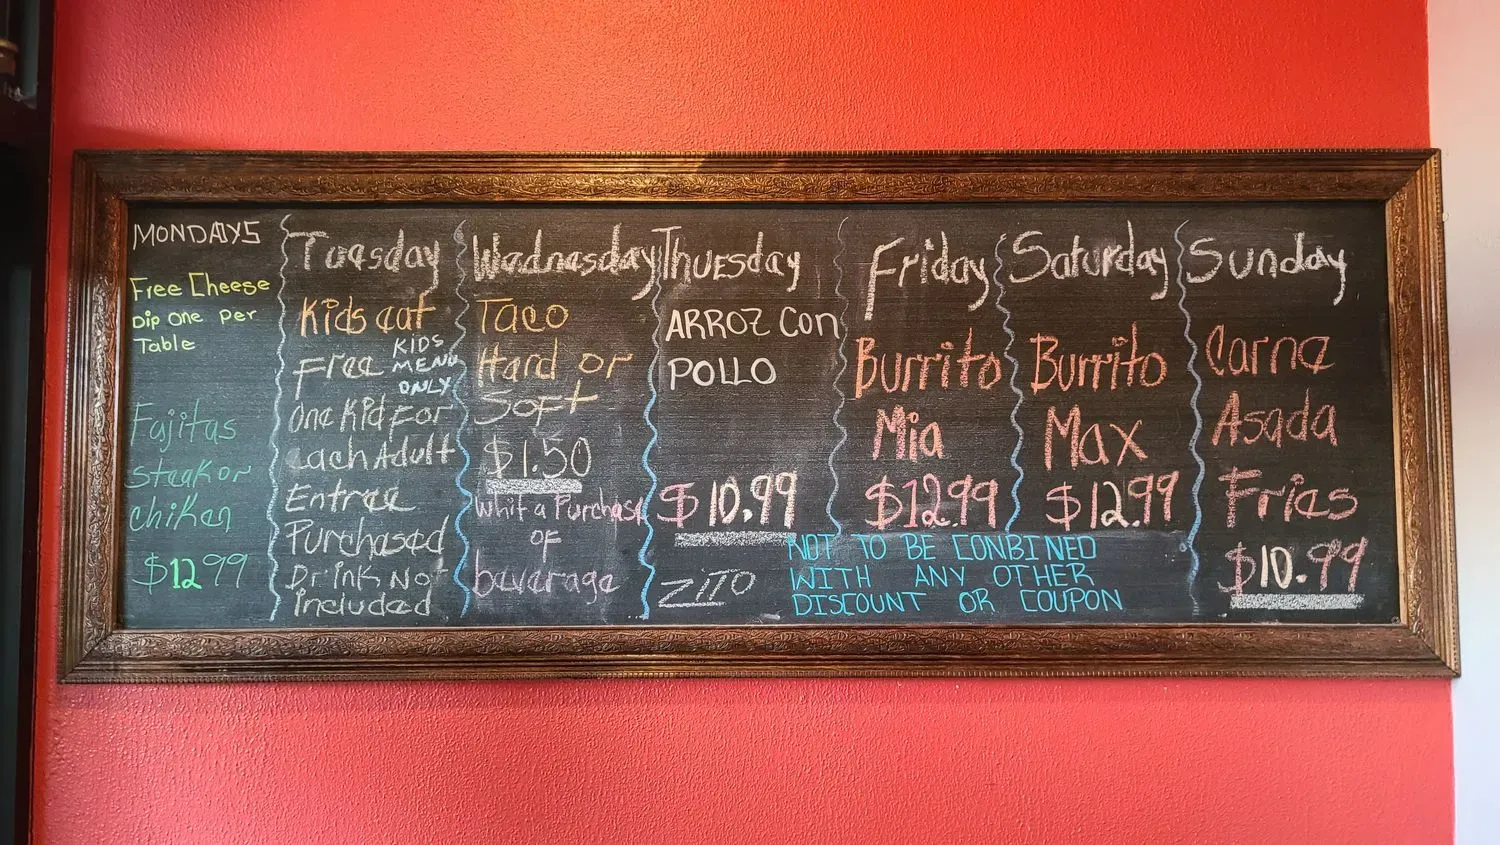 MONDAYS
Free Cheese
Dip One per
Table
Fajitas
steak or
chiken
$12.99
Tuesday
Kids eat
Free
KIDS
MENU
ONLY
One Kid For
each Adult
Entree
Purchased
Drink Not
included
Wednesday
Taco
Hard or
Soft
$1.50
whit a Purchase
of
beverage
Thuesday
ARROZ Con
POLLO
$10.99
ZITO
Friday
Burrito
Mia
$12.99
Saturday
Burrito
Max
$12.99
NOT TO BE CONBINED
WITH ANY OTHER
DISCOUNT OR COUPON
Sunday
Carne
Asada
Fries
$10.99